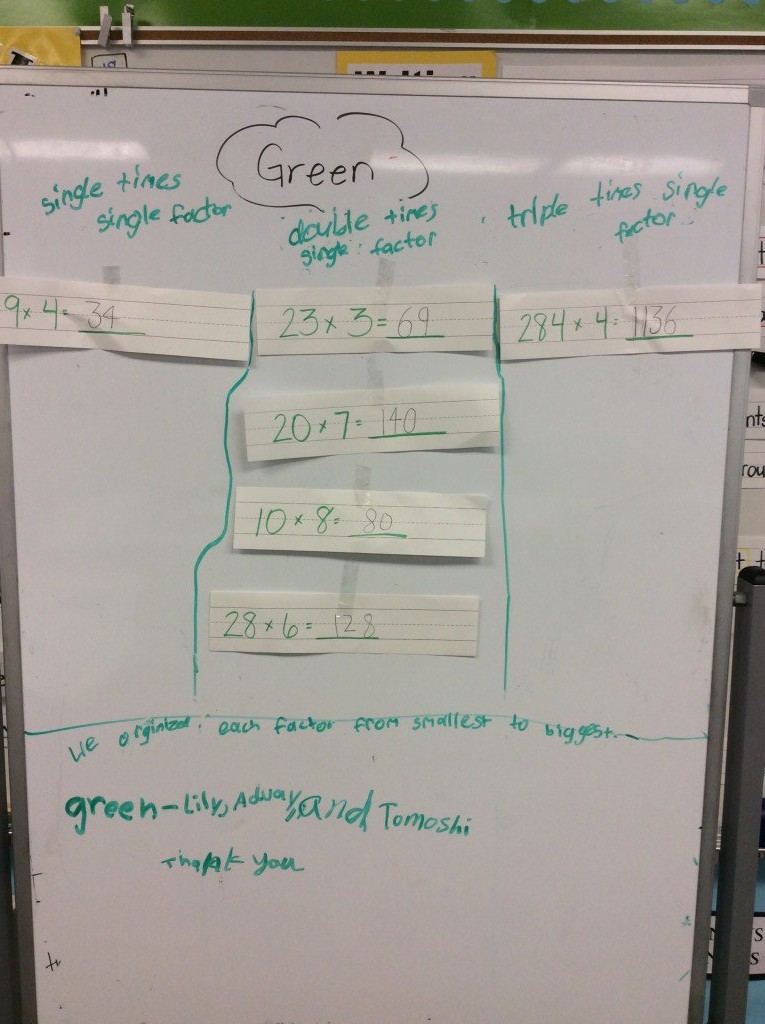 Green
single times
single factor
double times
single factor
triple times single
factor
9 x 4 = 34
23 x 3 = 69
20 x 7 = 140
10 x 8 = 80
28 x 6 = 128
284 x 4 = 1136
We orginized each factor from smallest to biggest.
green - Lily, Adway, and Tomoshi
Thank you